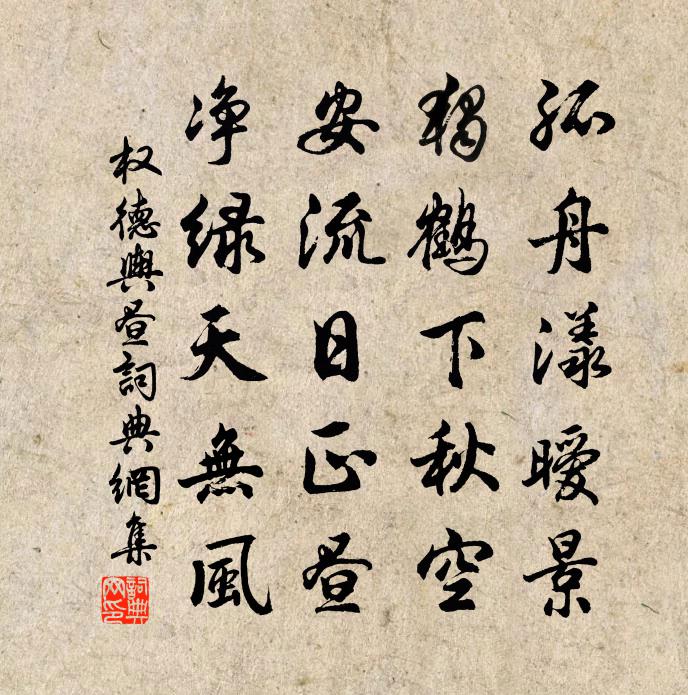 孤舟漾暧景
獨鶴下秋空
安流日正晝
净緑天無風
权德輿晝詞典網集
詞典網印